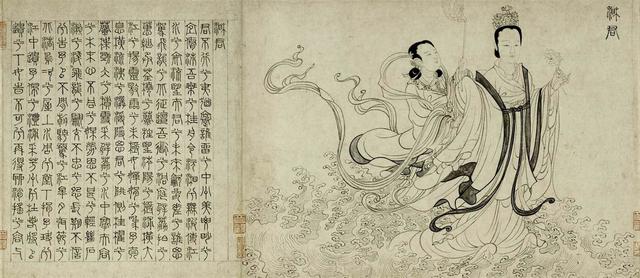 湘君
湘君
君不行兮夷猶蹇誰留兮中洲美要眇兮
宜脩沛吾乘兮桂舟令沅湘兮無波使江
水兮安流望夫君兮未來吹參差兮誰思
駕飛龍兮北征邅吾道兮洞庭薜荔拍兮
蕙綢蓀橈兮蘭旌望涔陽兮極浦橫大
江兮揚靈揚靈兮未極女嬋媛兮為余太
息橫流涕兮潺湲隱思君兮陫側桂櫂兮
蘭枻斲冰兮積雪采薜荔兮水中搴芙蓉
兮木末心不同兮媒勞恩不甚兮輕絕石
瀨兮淺淺飛龍兮翩翩交不忠兮怨長期不信
兮告余以不閒鼂騁騖兮江皋夕弭節兮
北渚鳥次兮屋上水周兮堂下捐余玦兮
江中遺余佩兮醴浦采芳洲兮杜若將以
遺兮下女時不可兮再得聊逍遙兮容與